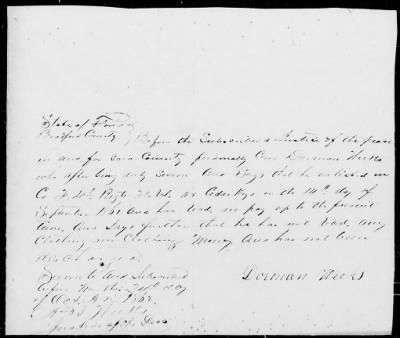 State of Florida
Bradford County. Before the Subscriber a Justice of the peace
in and for said County personally Came Dorman Weeks
who after being duly Sworn And Says that he enlisted in
Co F Regt Fla at Cedar Keys on the 14th day of
September 1861 and has had no pay up to the present
time, and Says further that he has not had any
Clothing nor Clothing Money and has not been

Sworn to and Subscribed
before me this day Dorman Weeks
of Oct A.D. 1862
Weeks
Justice of the Peace